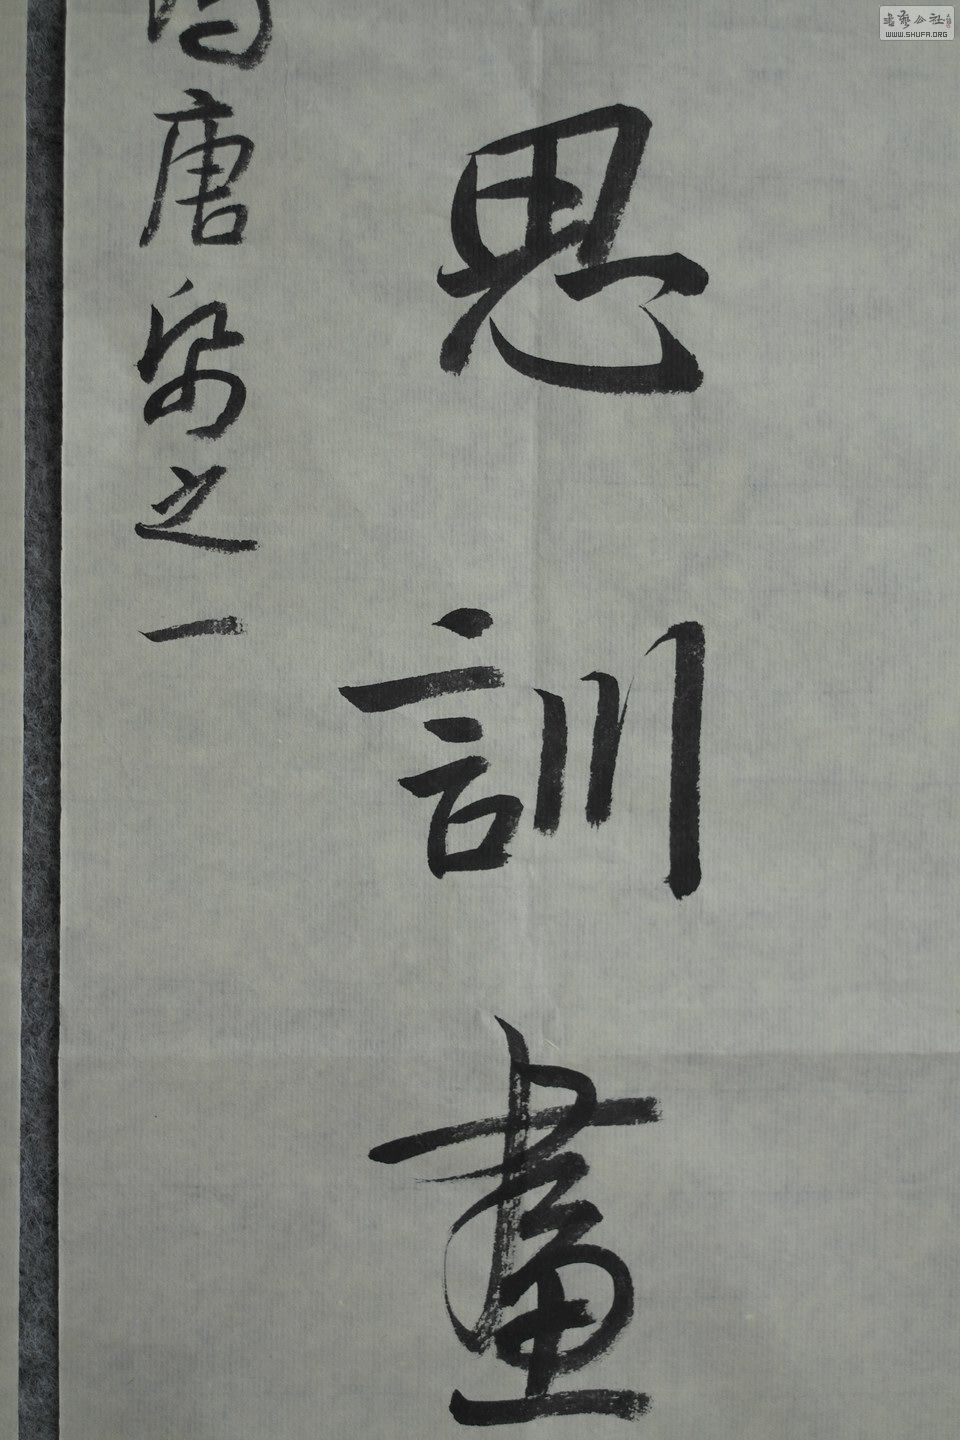 思訓畫
唐梁之一
書藝公社
WWW.SHUFA.ORG